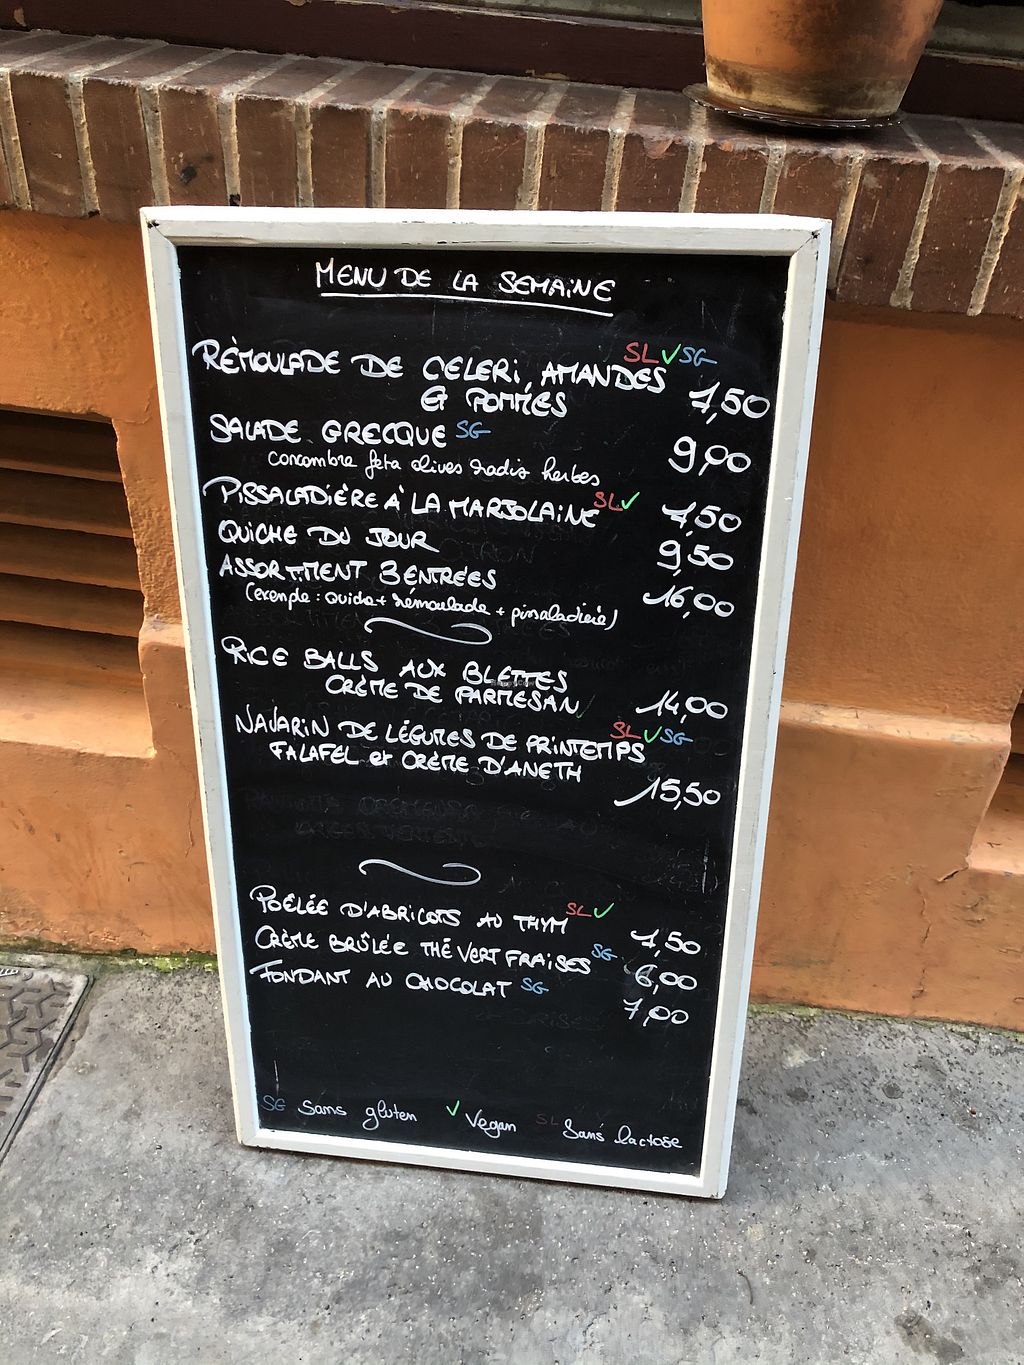 MENU DE LA SEMAINE
SL✓SG
RÉMOULADE DE CELERI, AMANDES
ET POMMES 7,50
SALADE GRECQUE SG 9,00
concombre feta olives radis herbes
PISSALADIÈRE À LA MARJOLAINE SL✓ 7,50
QUICHE DU JOUR 9,50
ASSORTIMENT 3 ENTRÉES 16,00
(exemple : quiche + rémoulade + pissaladière)
RICE BALLS AUX BLETTES
CRÈME DE PARMESAN 14,00
NAVARIN DE LÉGUMES DE PRINTEMPS SL✓SG
FALAFEL et CRÈME D'ANETH 15,50
POÊLÉE D'ABRICOTS AU THYM SL✓ 7,50
CRÈME BRÛLÉE THÉ VERT FRAISES SG 6,00
FONDANT AU CHOCOLAT SG 7,00
SG Sans gluten ✓ Vegan SL Sans lactose